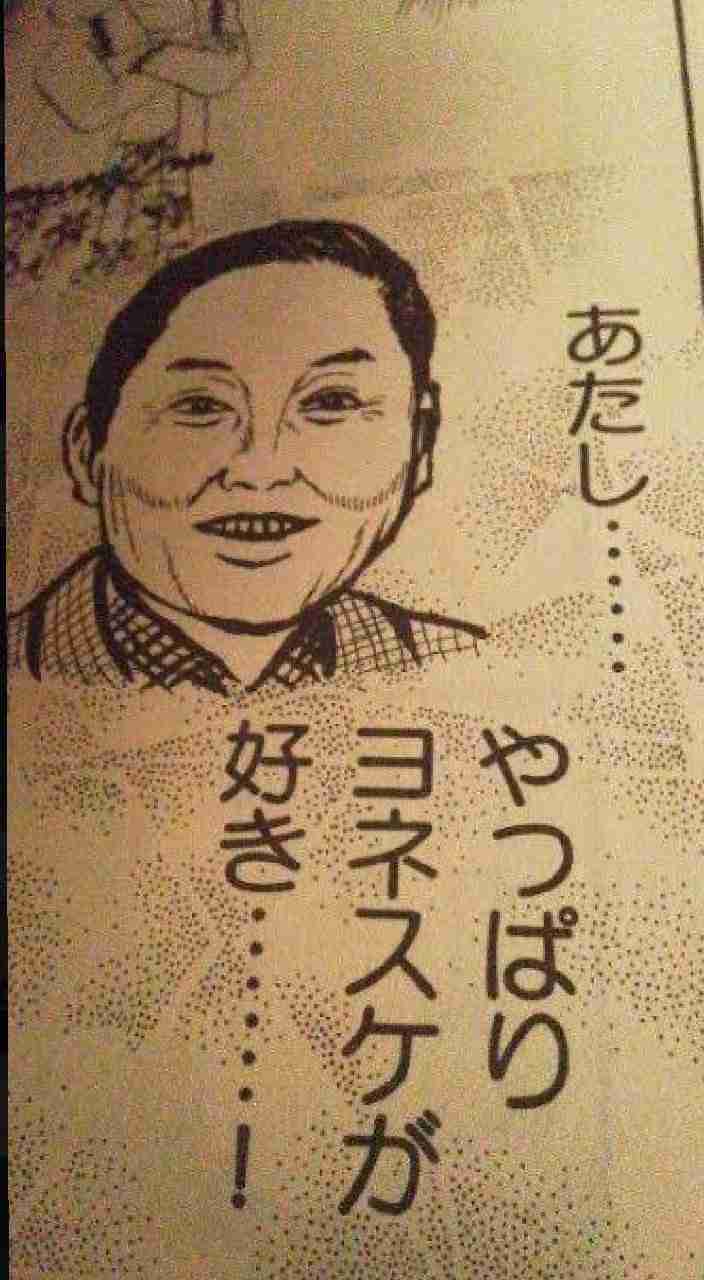 あたし……
やっぱり
ヨネスケが
好き……！